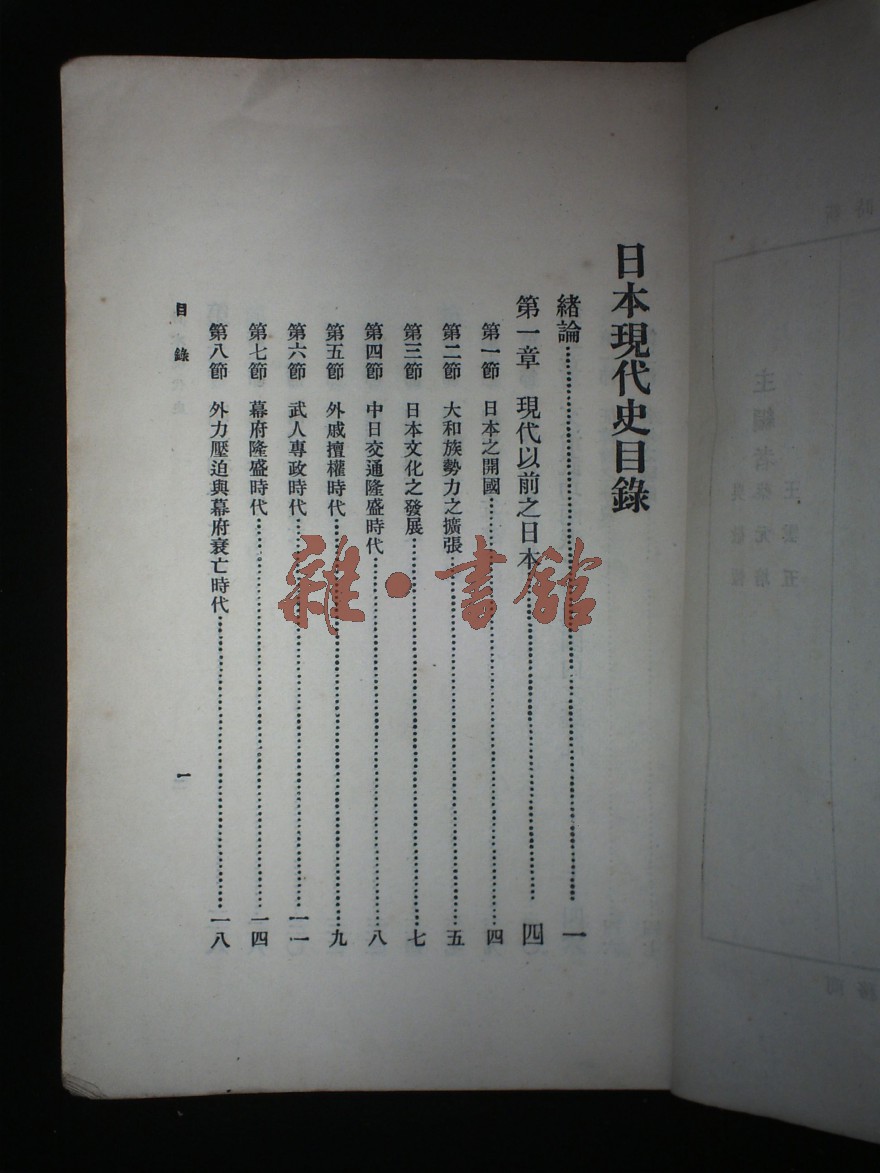 日本現代史目錄
緒論…………一
第一章 現代以前之日本…………四
第一節 日本之開國…………四
第二節 大和族勢力之擴張…………五
第三節 日本文化之發展…………七
第四節 中日交通隆盛時代…………八
第五節 外戚擅權時代…………九
第六節 武人專政時代…………一一
第七節 幕府隆盛時代…………一四
第八節 外力壓迫與幕府衰亡時代…………一八
目錄 一
雜·書館